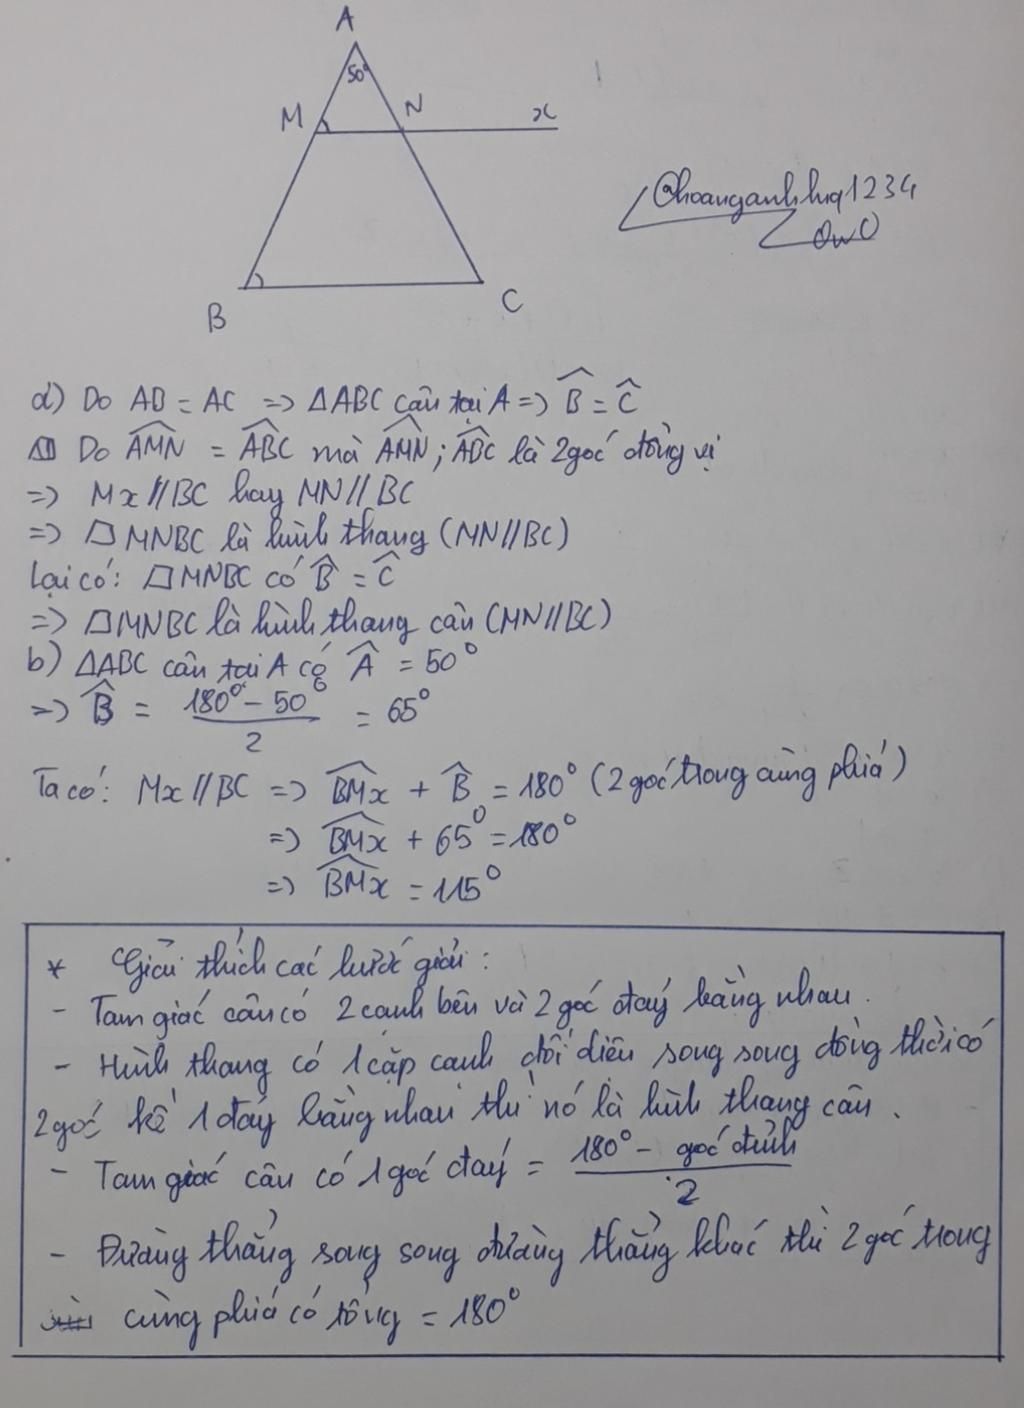 A
50°
M
N
x
@hoanganhhq1234
OwO
B
C
a) Do AB = AC => ΔABC cân tại A => B̂ = Ĉ
Do AMN = ABC mà AMN; ABC là 2 góc đồng vị
=> Mx // BC hay MN // BC
=> MNBC là hình thang (MN // BC)
Lại có: MNBC có B̂ = Ĉ
=> MNBC là hình thang cân (MN // BC)
b) ΔABC cân tại A có Â = 50°
=> B̂ = (180° - 50°)/2 = 65°
Ta có: Mx // BC => BMx + B̂ = 180° (2 góc trong cùng phía)
=> BMx + 65° = 180°
=> BMx = 115°
* Giải thích các bước giải:
- Tam giác cân có 2 cạnh bên và 2 góc đáy bằng nhau.
- Hình thang có 1 cặp cạnh đối diện song song đồng thời có
2 góc kề 1 đáy bằng nhau thì nó là hình thang cân.
- Tam giác cân có 1 góc đáy = (180° - góc đỉnh)/2
- Đường thẳng song song đường thẳng khác thì 2 góc trong
cùng phía có tổng = 180°